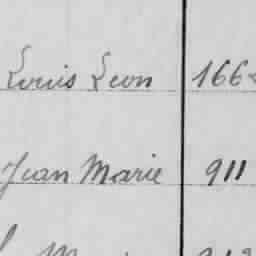 Louis Leon 166
Jean Marie 911